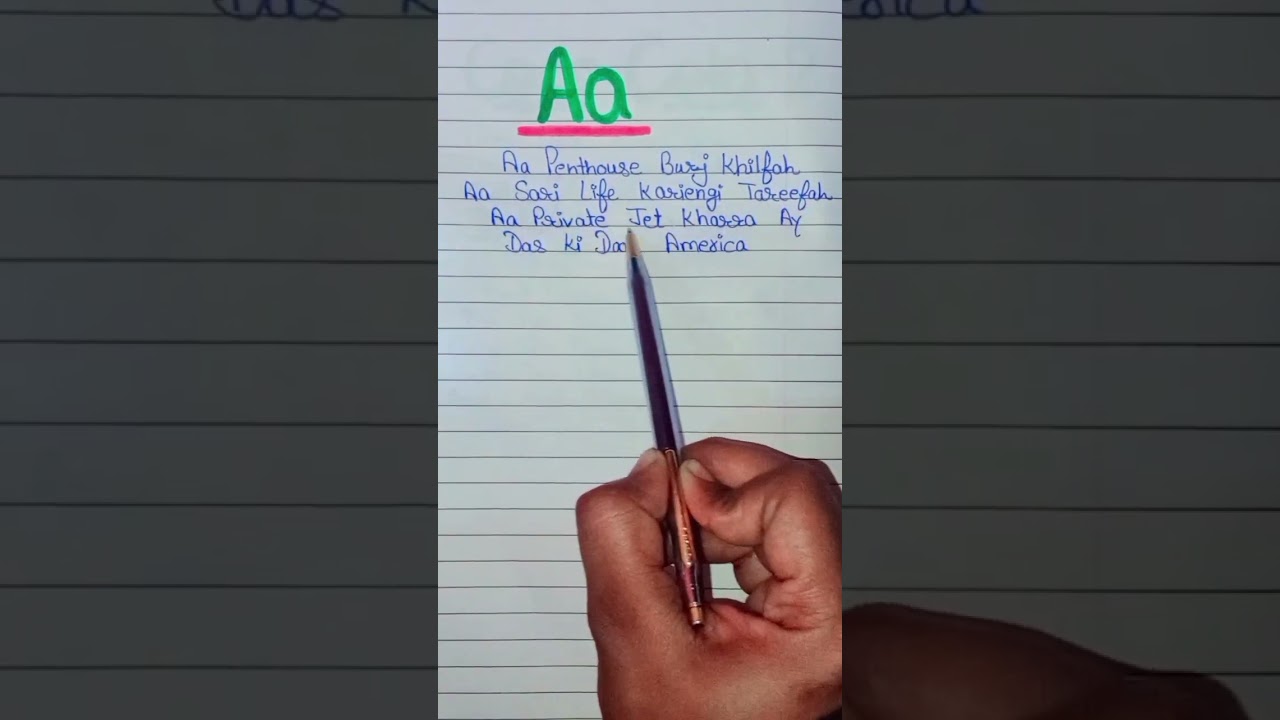 Aa
Aa Penthouse Burj Khilfah
Aa Sari Life Kariengi Tareefah
Aa Private Jet Kharra Ay
Das Ki America